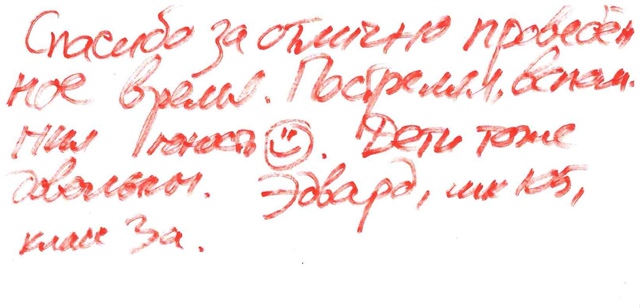 Спасибо за отлично проведён
ное время. Пострелял, вспом-
нил юность. Дети тоже
довольны. Эдвард, шк 105,
класс 3а.